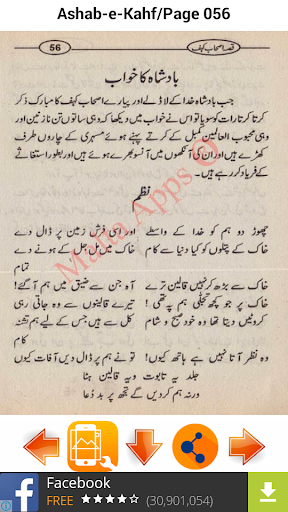 Ashab-e-Kahf/Page 056
56
قصہ اصحاب کہف
بادشاہ کا خواب
جب بادشاہ خدا کے لاڈلے اور پیارے اصحاب کہف کا مبارک ذکر
کرتا کرتا رات کو سویا تو اس نے خواب میں دیکھا کہ وہی ساتوں تن نازنین اور
وہی محبوب العالمین کمبل کے کرتے پہنے ہوئے مسہری کے چاروں طرف
کھڑے ہیں اور ان کی آنکھوں میں آنسو بھرے ہوئے ہیں اور بطور استغاثے
کے فریاد کر رہے ہیں۔
نظم
چھوڑ دو ہم کو خدا کے واسطے اور اسی فرش زمین پر ڈال دے
خاک کے پتلوں کو کیا دنیا سے کام خاک کے خاک میں مل جل کے ہونے دے
تمام
خاک سے بڑھ کر نہیں قالین ترے آہ جن سے ضیق میں ہم آ گئے!
خاک پر جو کچھ تجلی ہم پہ تھی! تیرے قالینوں سے وہ جاتی رہی
کروٹیں دیتا تھا وہ خود صبح و شام کل سے ہیں جس کے لیے ہم تشنہ
کام
وہ نظر آتا نہیں ہے ہاتھ کیوں! تو نے ہم پر ڈال دیں آفات کیوں
جلد یہ تابوت و یہ قالین ہٹا
ورنہ ہم کردیں گے تجھ پر بد دعا
Malia Apps ©
Facebook
FREE (30,901,054)